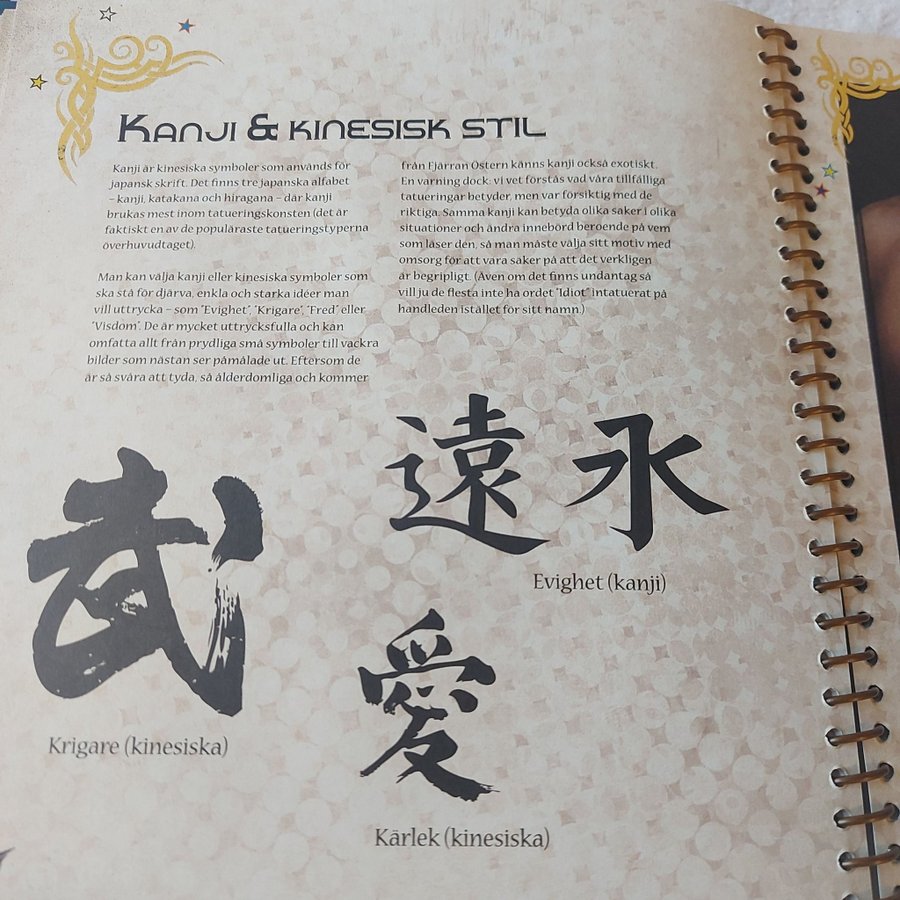 KANJI & KINESISK STIL
Kanji är kinesiska symboler som används för
japansk skrift. Det finns tre japanska alfabet
– kanji, katakana och hiragana – där kanji
brukas mest inom tatueringskonsten (det är
faktiskt en av de populäraste tatueringstyperna
överhuvudtaget).
Man kan välja kanji eller kinesiska symboler som
ska stå för djärva, enkla och starka idéer man
vill uttrycka – som "Evighet", "Krigare", "Fred" eller
"Visdom". De är mycket uttrycksfulla och kan
omfatta allt från prydliga små symboler till vackra
bilder som nästan ser påmålade ut. Eftersom de
är så svåra att tyda, så ålderdomliga och kommer
från Fjärran Östern känns kanji också exotiskt.
En varning dock: vi vet förstås vad våra tillfälliga
tatueringar betyder, men var försiktig med de
riktiga. Samma kanji kan betyda olika saker i olika
situationer och ändra innebörd beroende på vem
som läser den, så man måste välja sitt motiv med
omsorg för att vara säker på att det verkligen
är begripligt. (Även om det finns undantag så
vill ju de flesta inte ha ordet "Idiot" intatuerat på
handleden istället för sitt namn.)
遠永
Evighet (kanji)
武
Krigare (kinesiska)
愛
Kärlek (kinesiska)